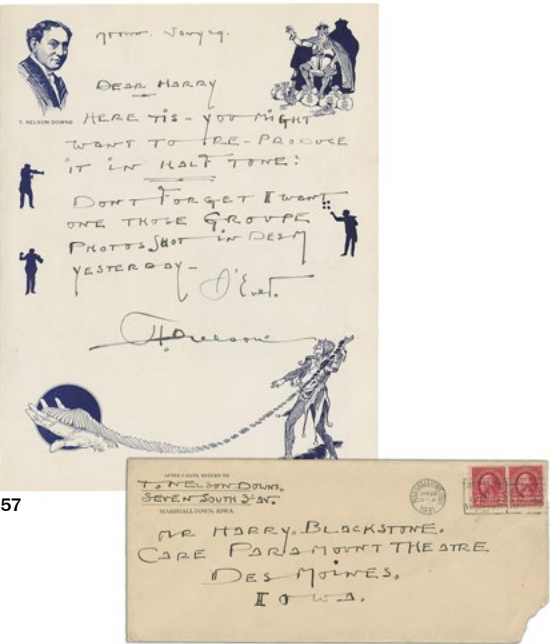 T. NELSON DOWNS
DEAR HARRY
HERE TIS - YOU MIGHT
WANT TO RE-PRODUCE
IT IN HALF TONE:
DON'T FORGET I WANT
ONE THOSE GROUPE
PHOTOS SHOT IN DESM
YESTERDAY-
57
AFTER 5 DAYS, RETURN TO
T. NELSON DOWNS.
SEVEN SOUTH 3D AV.
MARSHALLTOWN, IOWA
MR HARRY. BLACKSTONE.
CARE PARAMOUNT THEATRE
DES MOINES.
IOWA.